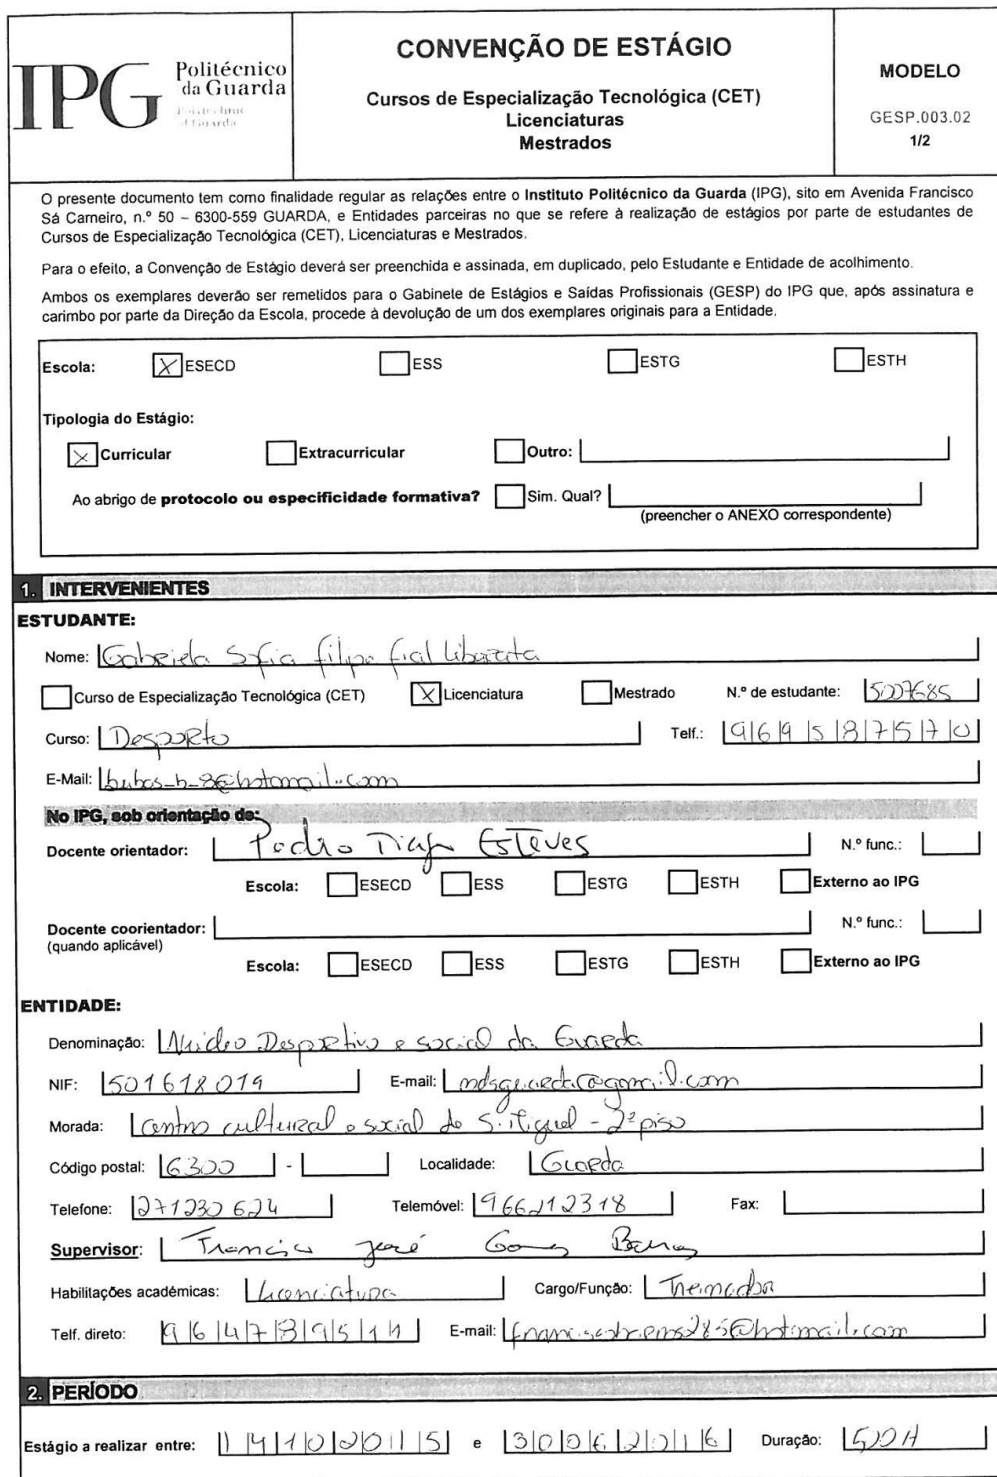 IPG Politécnico da Guarda
Polytechnic of Guarda
CONVENÇÃO DE ESTÁGIO
Cursos de Especialização Tecnológica (CET)
Licenciaturas
Mestrados
MODELO
GESP.003.02
1/2
O presente documento tem como finalidade regular as relações entre o Instituto Politécnico da Guarda (IPG), sito em Avenida Francisco
Sá Carneiro, n.º 50 – 6300-559 GUARDA, e Entidades parceiras no que se refere à realização de estágios por parte de estudantes de
Cursos de Especialização Tecnológica (CET), Licenciaturas e Mestrados.
Para o efeito, a Convenção de Estágio deverá ser preenchida e assinada, em duplicado, pelo Estudante e Entidade de acolhimento.
Ambos os exemplares deverão ser remetidos para o Gabinete de Estágios e Saídas Profissionais (GESP) do IPG que, após assinatura e
carimbo por parte da Direção da Escola, procede à devolução de um dos exemplares originais para a Entidade.
Escola: X ESECD ESS ESTG ESTH
Tipologia do Estágio:
X Curricular Extracurricular Outro:
Ao abrigo de protocolo ou especificidade formativa? Sim. Qual?
(preencher o ANEXO correspondente)
1. INTERVENIENTES
ESTUDANTE:
Nome: Gabriela Sofia filipe fial liberata
Curso de Especialização Tecnológica (CET) X Licenciatura Mestrado N.º de estudante: 5007685
Curso: Desporto Telf.: 969587570
E-Mail:
No IPG, sob orientação de:
Docente orientador: Pedro Tiago Esteves N.º func.:
Escola: ESECD ESS ESTG ESTH Externo ao IPG
Docente coorientador: N.º func.:
(quando aplicável)
Escola: ESECD ESS ESTG ESTH Externo ao IPG
ENTIDADE:
Denominação: Núcleo Desportivo e social da Guarda
NIF: 501618019 E-mail: ndsguarda@gmail.com
Morada: Centro cultural e social de S. Miguel - 2º piso
Código postal: 6300 - Localidade: Guarda
Telefone: 271230624 Telemóvel: 966212318 Fax:
Supervisor: Francisco José Gomes
Habilitações académicas: Licenciatura Cargo/Função: Treinador
Telf. direto: 964789511 E-mail:
2. PERÍODO
Estágio a realizar entre: 14102015 e 30062016 Duração: 500H